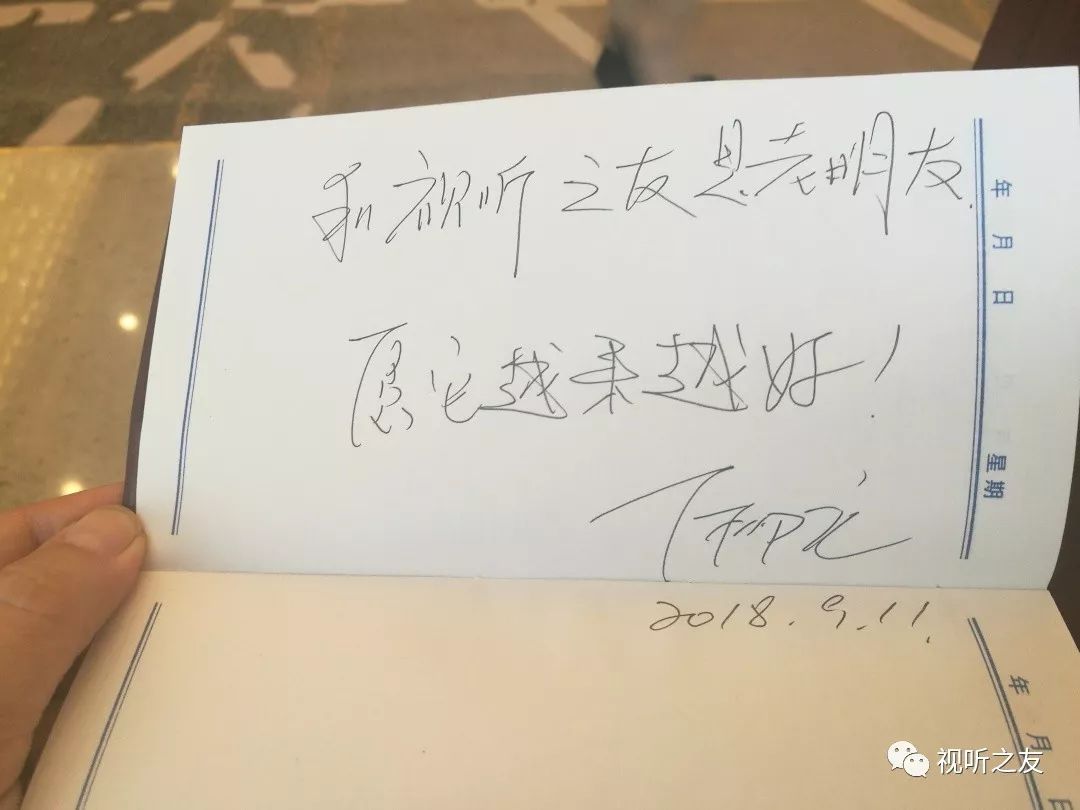 和视听之友是老朋友.
愿它越来越好!
丁柳元
2018.9.11.
年 月 日 星期
年 月 日
视听之友